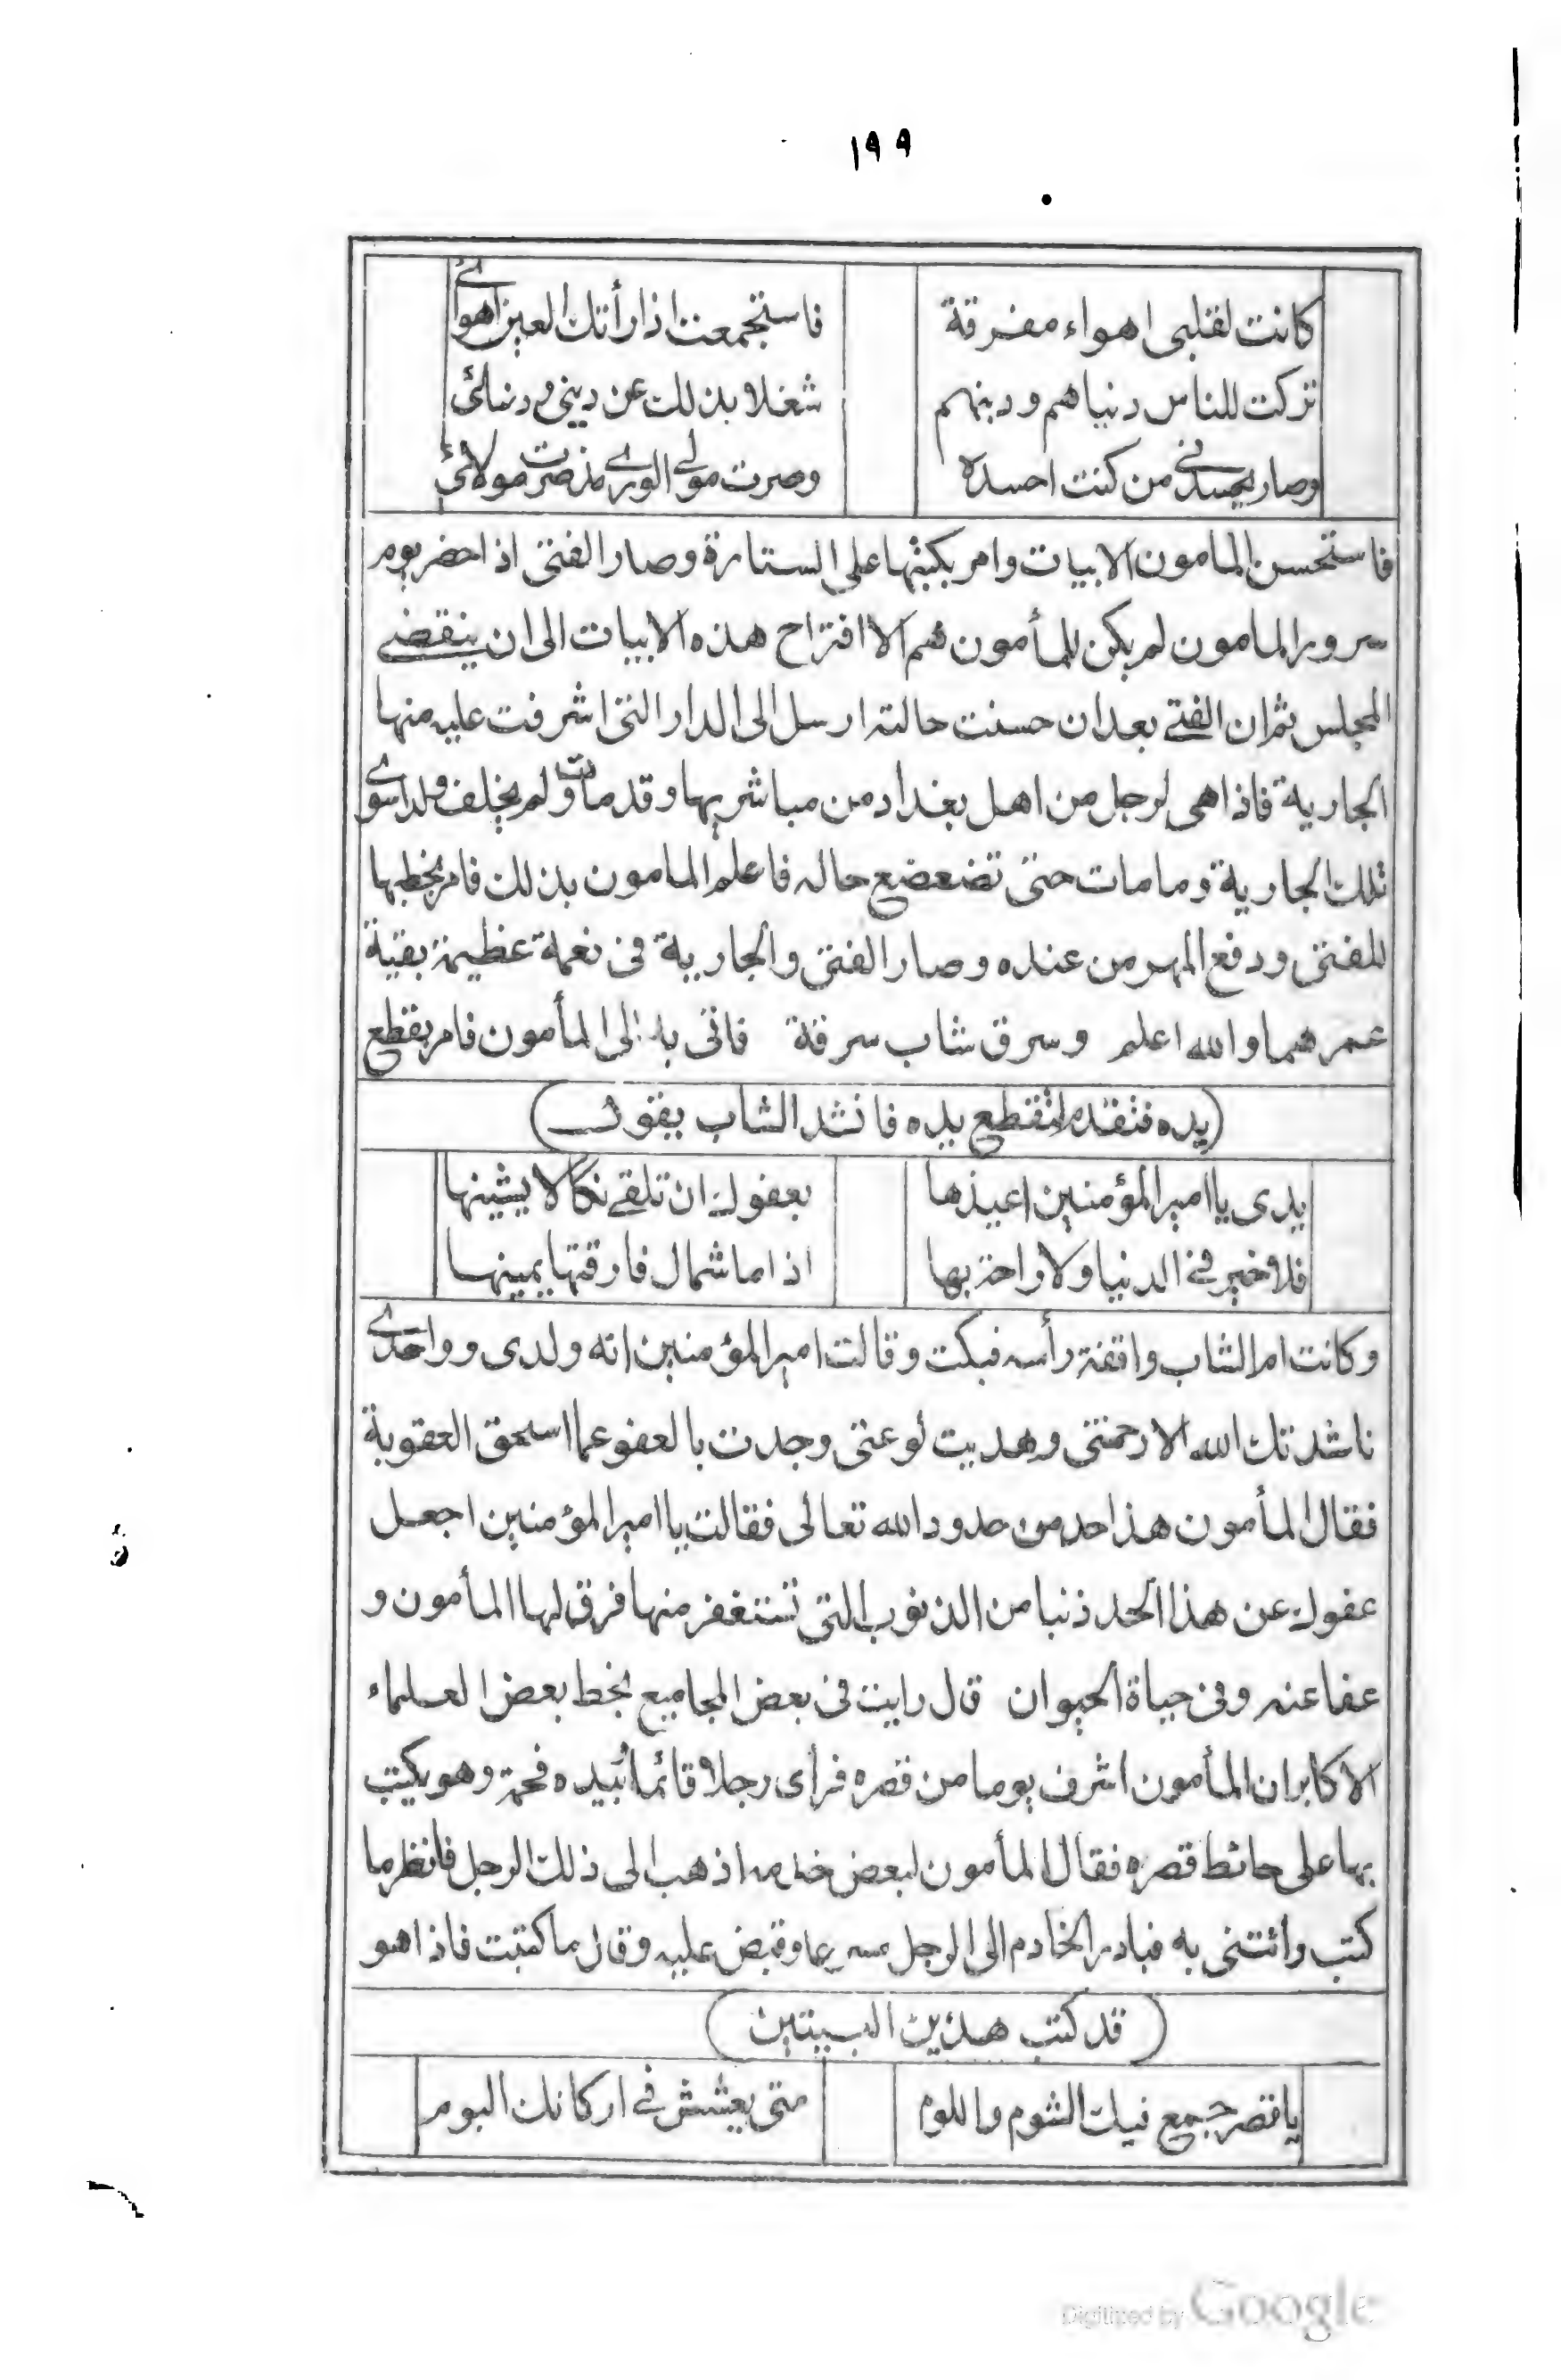 ١٩٩
كانت لقلبى اهواء مفرقة فاستجمعت اذ رأتك العين اهوائى
تركت للناس دنياهم ودينهم شغلا بذلك عن دينى ودنيائى
وصار يحسدنى من كنت احسده وصرت مولى الورى مذ صرت مولائى
فاستحسن المامون الابيات وامر بكتبها على الستارة وصار الفتى اذا حضر يوم
سرور المامون لم يكن للمأمون هم الا اقتراح هذه الابيات الى ان ينقضى
المجلس ثم ان الفتى بعد ان حسنت حالته ارسل الى الدار التى اشرفت عليه منها
الجارية فاذا هى لرجل من اهل بغداد من مباشريها وقد مات ولم يخلف ولدا سوى
تلك الجارية وما مات حتى تضعضع حاله فاعلم المامون بذلك فامر بخطبها
للفتى ودفع المهر من عنده وصار الفتى والجارية فى نعمة عظيمة بقية
عمرهما والله اعلم وسرق شاب سرقة فاتى به الى المأمون فامر بقطع
(يده فتقدم لتقطع يده فانشد الشاب يقول)
يدى يا امير المؤمنين اعيذها بعفوك ان تلقى نكالا يشينها
فلا خير فى الدنيا ولا راحة بها اذا ما شمال فارقتها يمينها
وكانت ام الشاب واقفة رأسه فبكت وقالت امير المؤمنين انه ولدى وواحدى
ناشدتك الله الا رحمتنى وهديت لوعتى وجدت بالعفو عما استحق العقوبة
فقال المأمون هذا حد من حدود الله تعالى فقالت يا امير المؤمنين اجعل
عفوك عن هذا الحد ذنبا من الذنوب التى تستغفر منها فرق لها المأمون و
عفا عنه وفى حياة الحيوان قال رايت فى بعض المجاميع بخط بعض العلماء
الاكابر ان المأمون اشرف يوما من قصره فرأى رجلا قائما بيده فحمة وهو يكتب
بها على حائط قصره فقال المأمون لبعض خدمه اذهب الى ذلك الرجل فانظر ما
كتب وائتنى به فبادر الخادم الى الرجل مسرعا وقبض عليه وقال ما كتبت فاذا هو
(قد كتب هذين البيتين)
يا قصر جمع فيك الشوم واللوم متى يعشش فى اركانك البوم
Digitized by Google